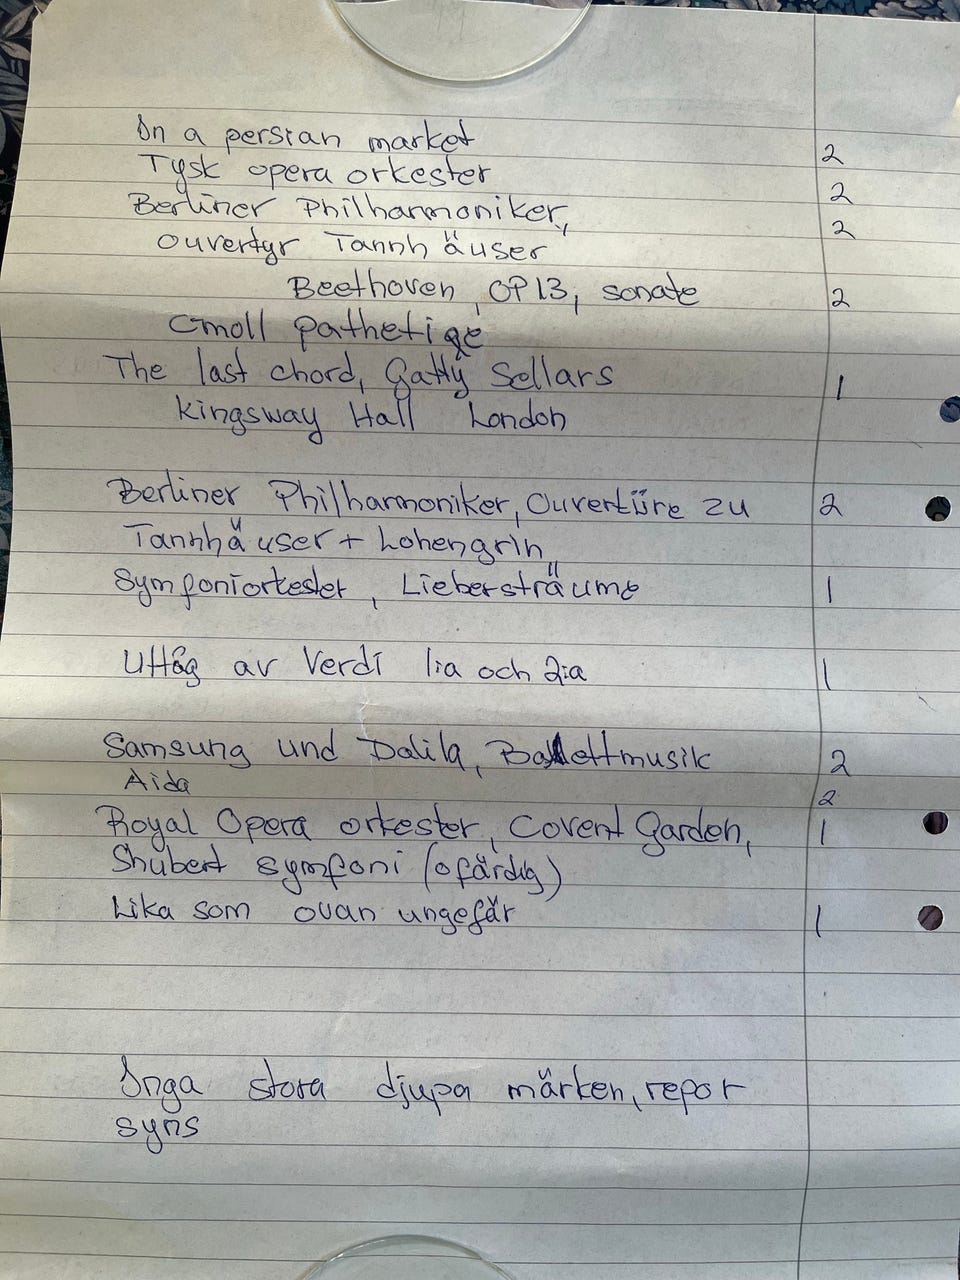 In a persian market 2
Tysk opera orkester 2
Berliner Philharmoniker, 2
ouvertyr Tannhäuser
Beethoven, OP 13, sonate 2
Cmoll pathetiqe
The last chord, Gatty Sellars 1
Kingsway Hall London
Berliner Philharmoniker, Ouvertüre zu 2
Tannhäuser + Lohengrin
Symfoniorkester, Liebersträume 1
Uttåg av Verdi 1:a och 2:a 1
Samsung und Dalila, Ballettmusik 2
Aida 2
Royal Opera orkester, Covent Garden, 1
Shubert symfoni (ofärdig)
Lika som ovan ungefär 1
Inga stora djupa märken, repor
syns